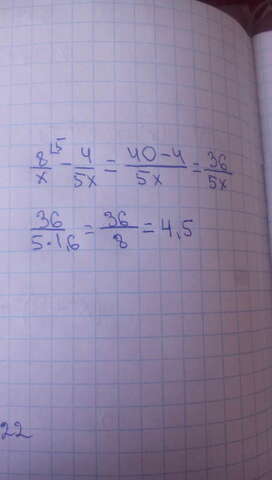 8/x ^(5 - 4/5x = 40-4/5x = 36/5x
36/5·1,6 = 36/8 = 4,5
22